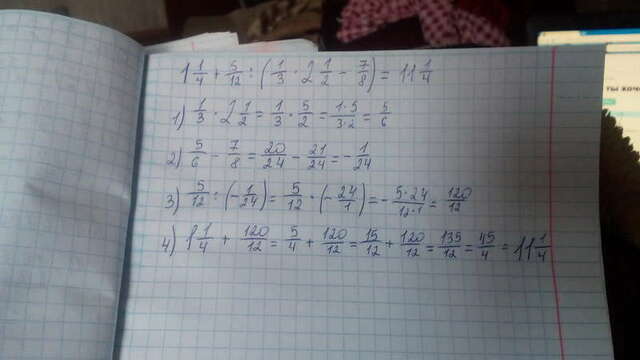 1 1/4 + 5/12 : (1/3 · 2 1/2 - 7/8) = 11 1/4
1) 1/3 · 2 1/2 = 1/3 · 5/2 = 1·5/3·2 = 5/6
2) 5/6 - 7/8 = 20/24 - 21/24 = - 1/24
3) 5/12 : (- 1/24) = 5/12 · (- 24/1) = - 5·24/12·1 = 120/12
4) 1 1/4 + 120/12 = 5/4 + 120/12 = 15/12 + 120/12 = 135/12 = 45/4 = 11 1/4
ты хоче